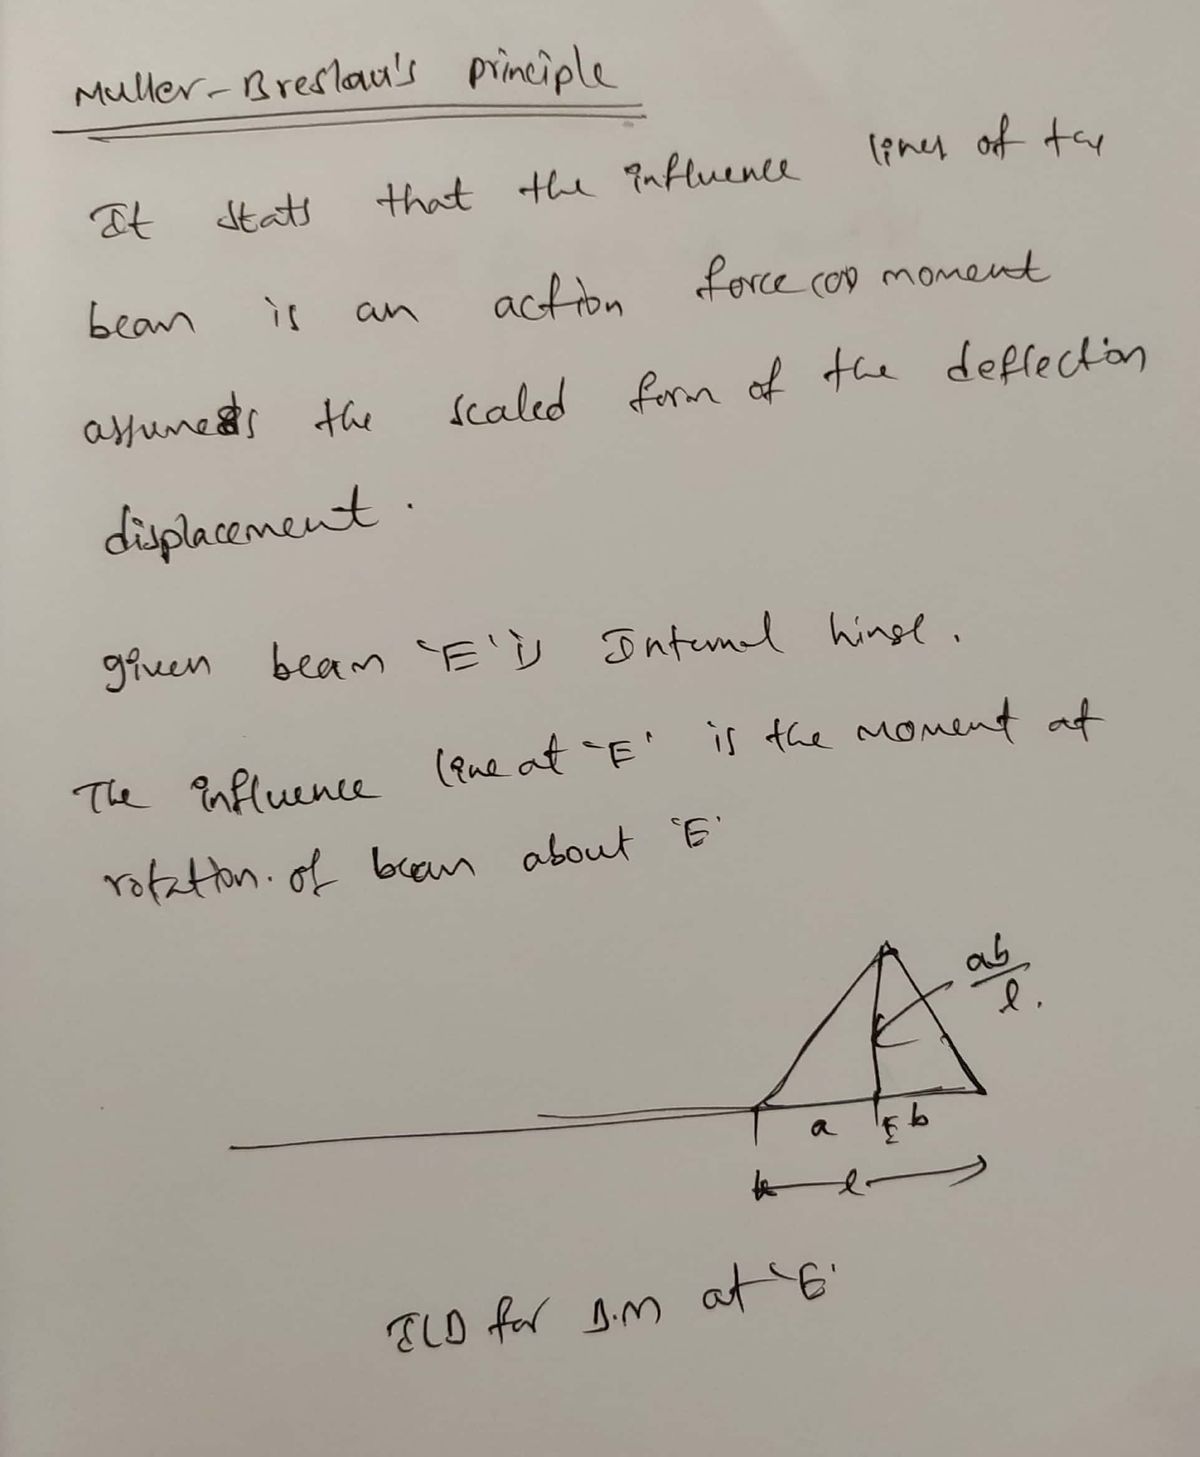 Muller-Breslau's principle
It stats that the influence lines of the
beam is an action force (or) moment
assumes the scaled form of the deflection
displacement.
given beam 'E' is Internal hinge.
The influence line at 'E' is the moment at
rotation. of beam about 'E'
ab
l.
a E b
l
ILD for B.M at 'E'